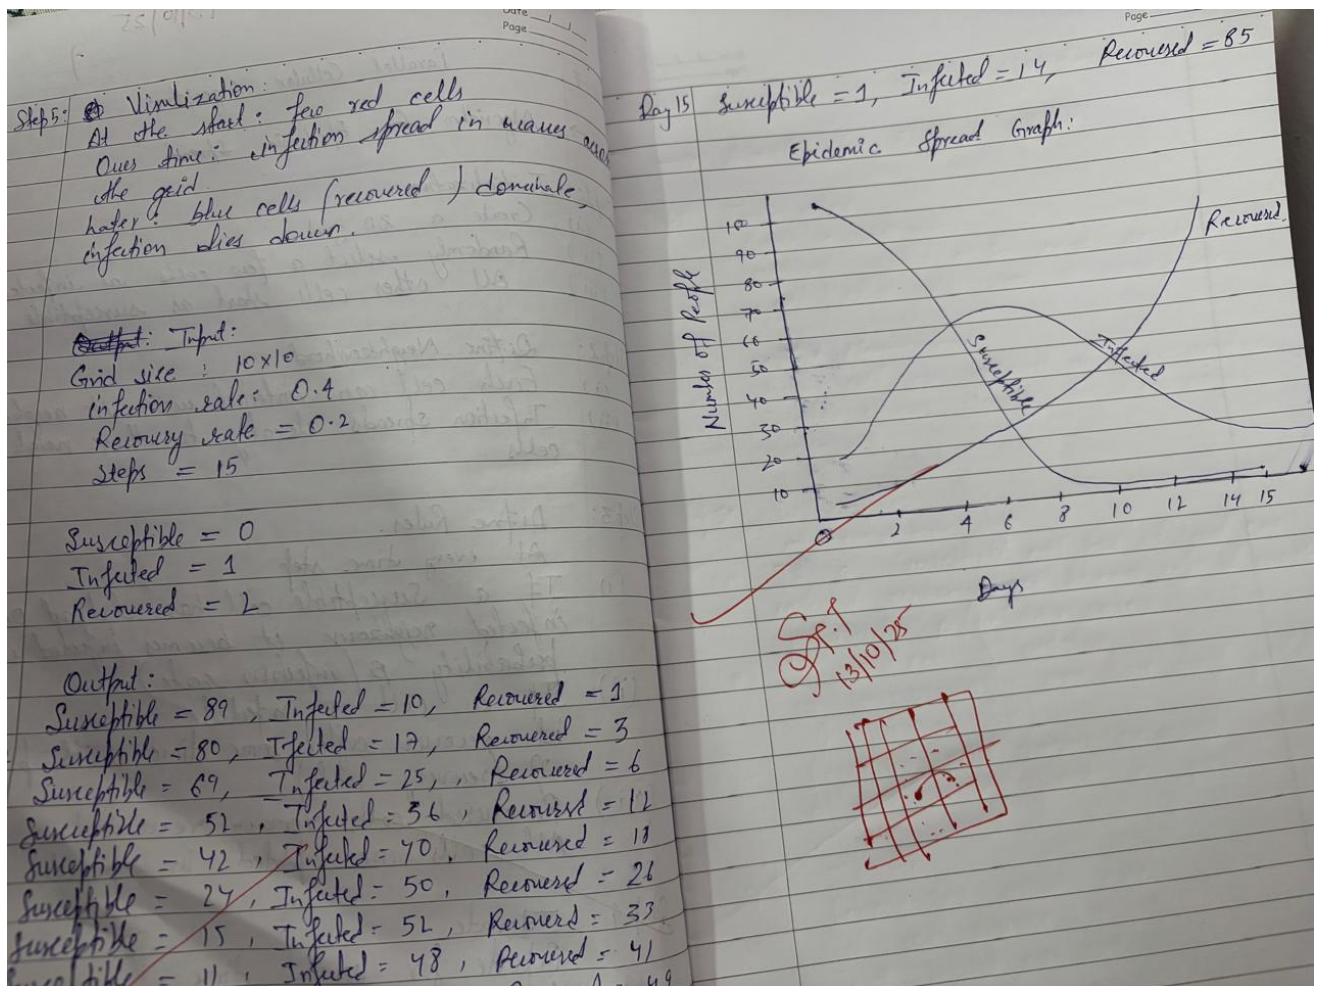 Date
Page
Step5: Visulization:
At the start: few red cells
Over time: infection spread in waves across
the grid
Later: blue cells (recovered) dominate,
infection dies down.
Output: Input:
Grid size : 10×10
infection rate: 0.4
Recovery rate = 0.2
Steps = 15
Susceptible = 0
Infected = 1
Recovered = 2
Output:
Susceptible = 89, Infected = 10, Recovered = 1
Susceptible = 80, Ifected = 17, Recovered = 3
Susceptible = 69, Infected = 25, Recovered = 6
Susceptible = 52, Infected = 36, Recovered = 12
Susceptible = 42, Infected = 40, Recovered = 18
Susceptible = 24, Infected = 50, Recovered = 26
Susceptible = 15, Infected = 52, Recovered = 33
Susceptible = 11, Infected = 48, Recovered = 41
49
Page
Day 15 Susceptible = 1, Infected = 14, Recovered = 85
Epidemic Spread Graph:
Number of People
100
90
80
70
60
50
40
30
20
10
0
Susceptible
Infected
Recovered
2 4 6 8 10 12 14 15
Days
13/10/25